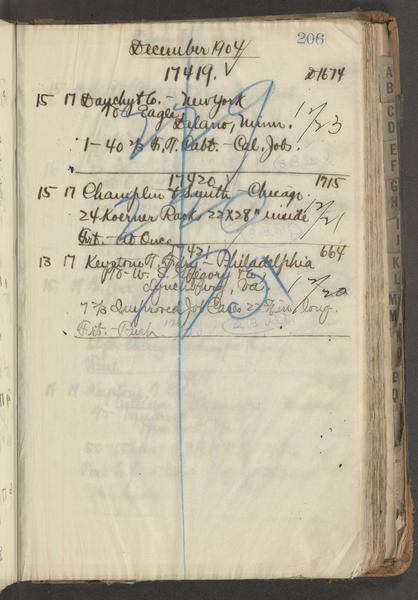 206
December 1904
17419. ✓ D1674
15 17 Damchyt Co. - New York
To Eagle,
Delano, Minn. 12/23
1 - 40 2/3 F.T. Cabt. - Cal. Job.
17420 ✓ 1715
15 17 Champlin & Smith - Chicago
24 Koerner Racks 22x28" inside 12/21
Frt. - At Once
17421 664
13 17 Keystone T. Fdry - Philadelphia
To W. S. Gregory & Co
Lynchburg, Va. 12/20
7 2/3 Improved Job Cases long.
Frt. - Rush
A
B
C
D
E
F
G
H
I
J
K
L
M